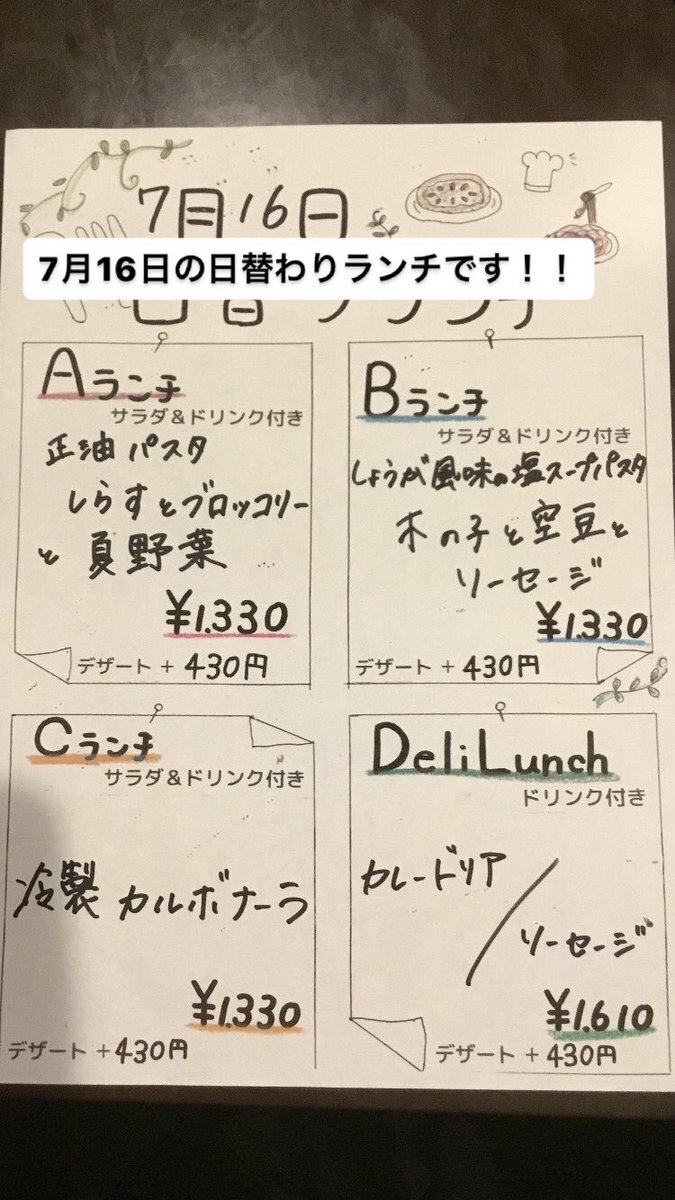 7月16日
7月16日の日替わりランチです！！
Aランチ
サラダ＆ドリンク付き
正油パスタ
しらすとブロッコリー
と夏野菜
¥1.330
デザート + 430円
Bランチ
サラダ＆ドリンク付き
しょうが風味の塩スープパスタ
木の子と空豆と
ソーセージ
¥1.330
デザート + 430円
Cランチ
サラダ＆ドリンク付き
冷製カルボナーラ
¥1.330
デザート + 430円
DeliLunch
ドリンク付き
カレードリア
/
ソーセージ
¥1.610
デザート + 430円